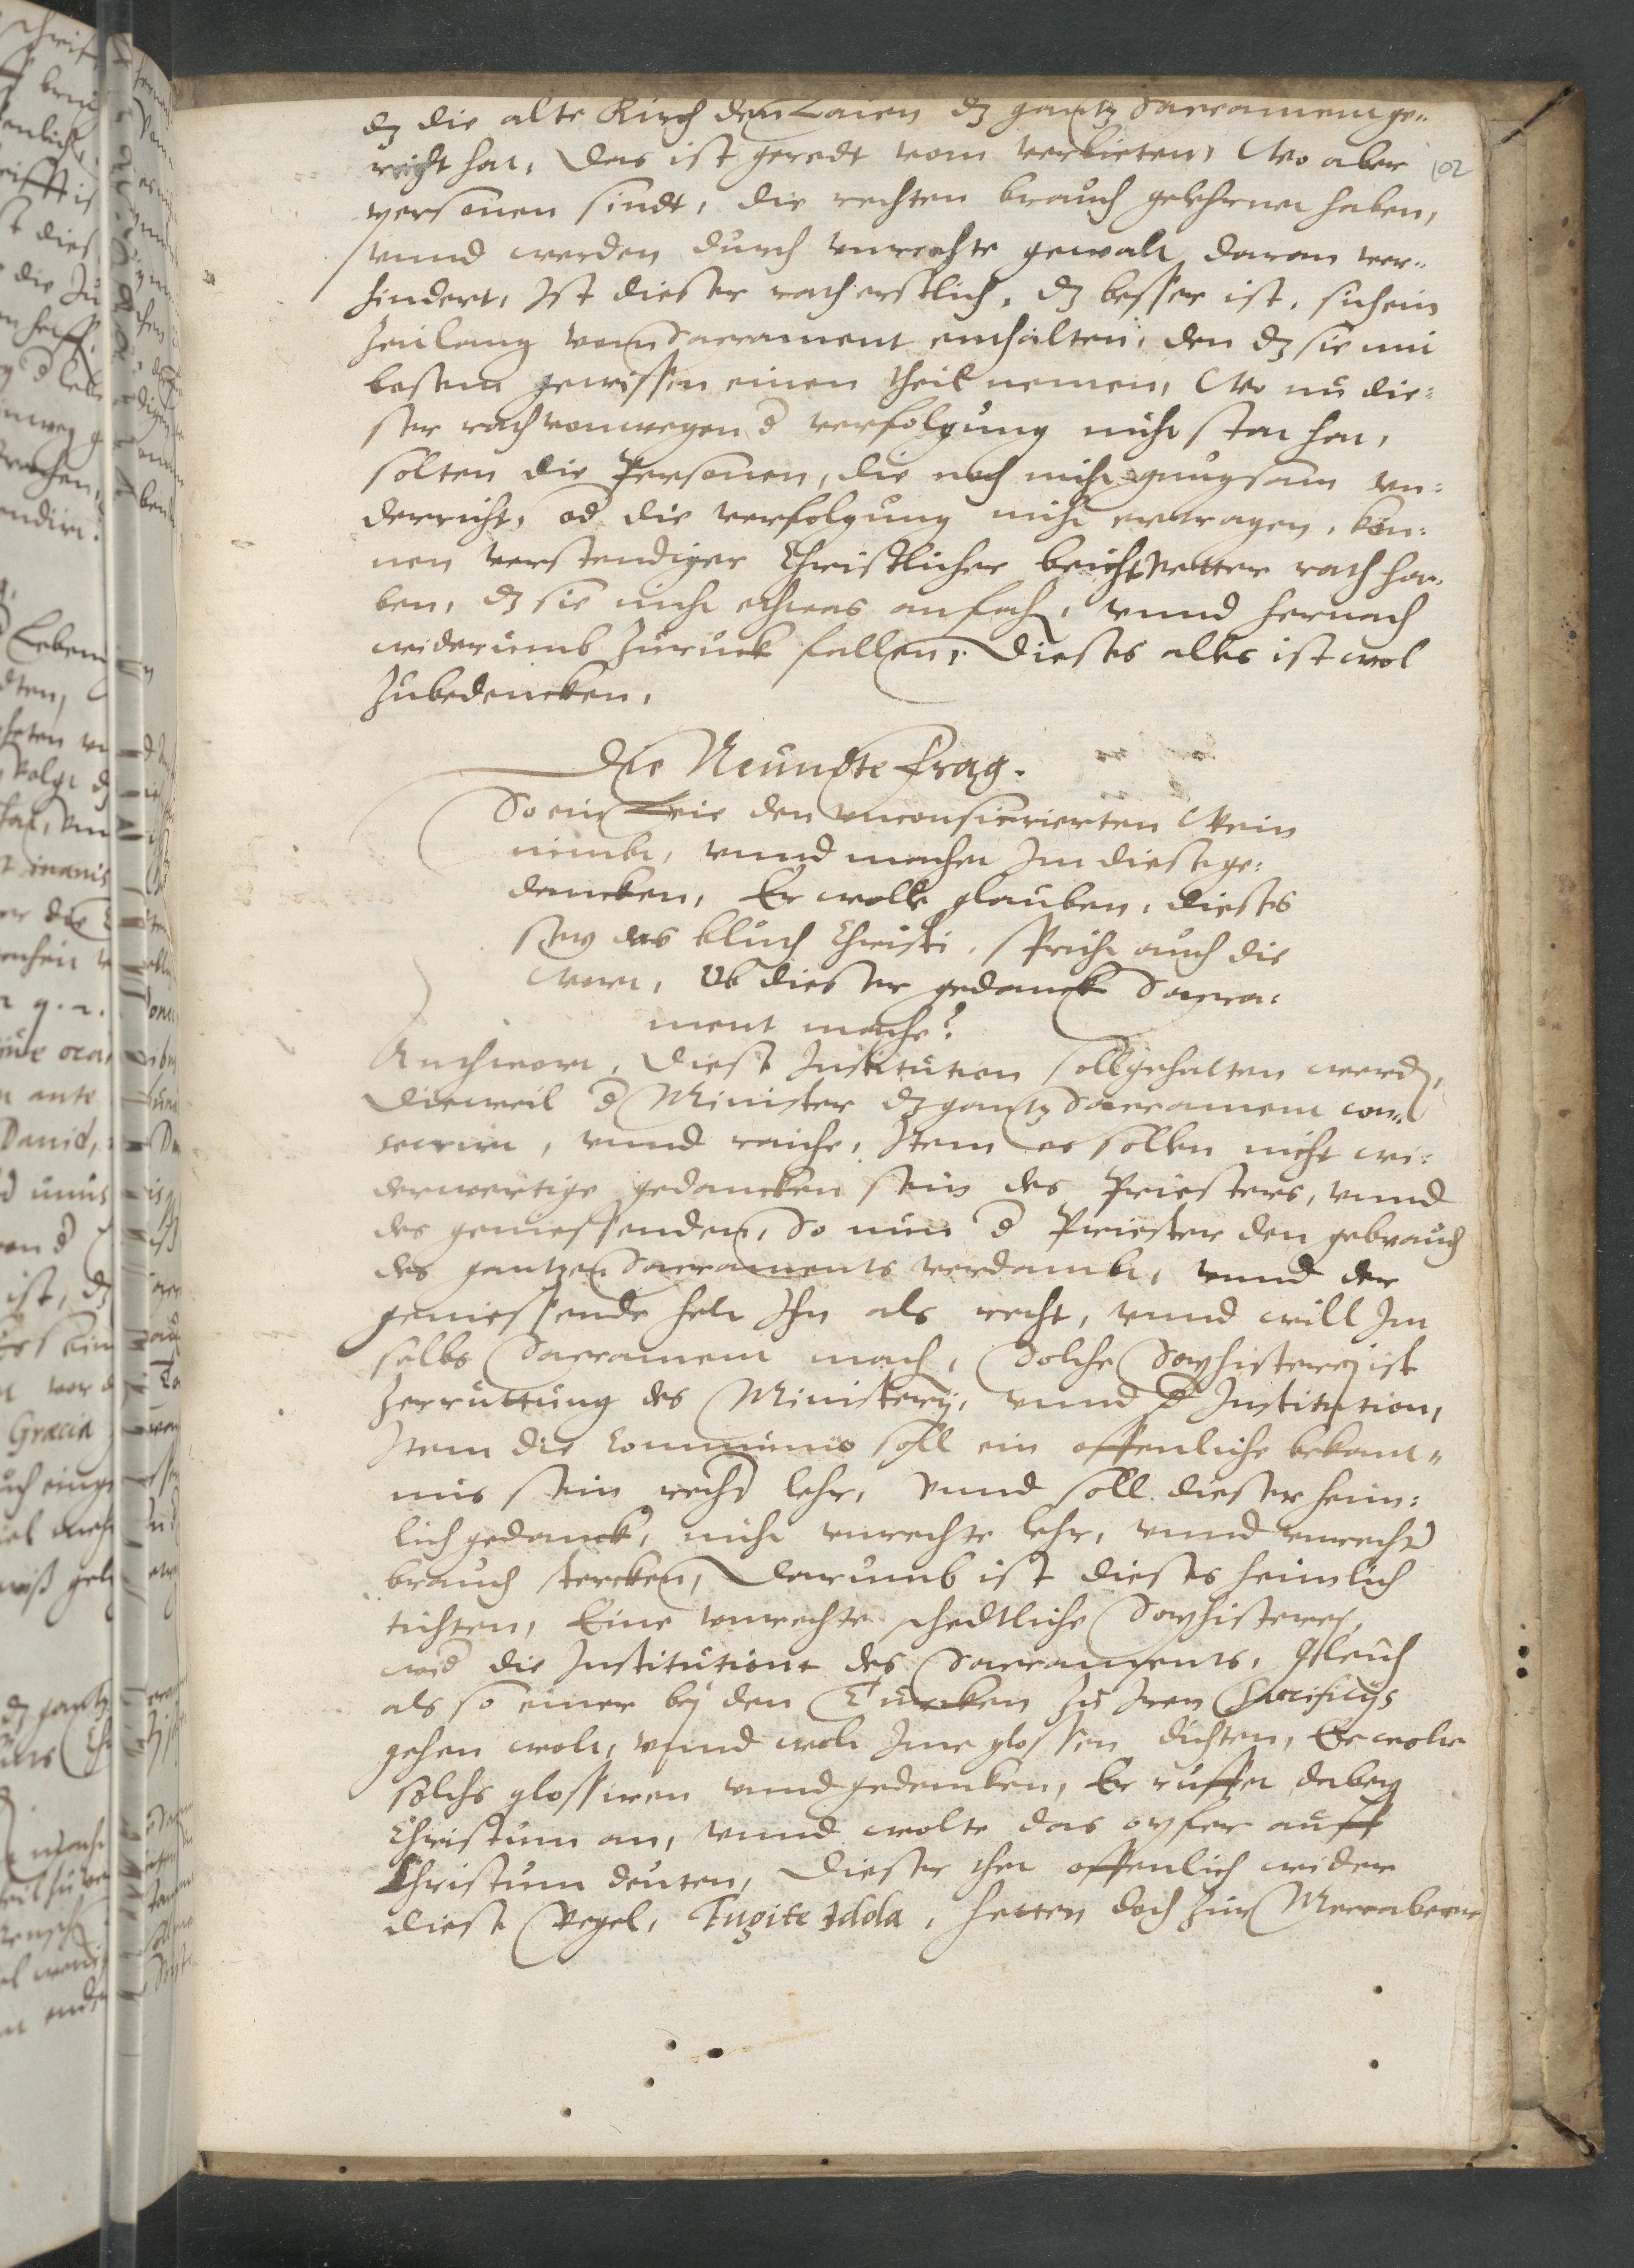 dz die alte Kirch den Laien dz gantz Sacrament ge¬
reicht hat, Das ist geredt vom verbieten, Wo aber
102
personen sindt, die rechten brauch gelehrnet haben,
vnnd werden durch vnrechte gewalt daran ver¬
hindert, Ist dieser rath erstlich, dz besser ist, sich ein
Zeitlang vom Sacrament enthalten, den dz sie mit
bosem gewissen einen theil nemen, Wo nu die¬
ser rath von wegen d verfolgung nicht stat hat,
solten die Personen, die noch nicht gnugsam vn¬
derricht, od die verfolgung nicht ertragen, kön¬
nen verstendiger Christlicher beicht Vetter rath ha¬
ben, dz sie nicht ethwas anfach, vnnd hernach
widerumb zuruck fallen, Dieses alles ist wol
Zubedencken,
Die Neundte Frag.
So ein Leie den vnconsecrierten Wein
nimbt, vnnd machet Im diese ge¬
dancken, Er wolle glauben, dieses
sey das bluth Christi, spricht auch die
wort, Ob dieser gedanck Sacra¬
ment mache?
Anthwort, Diese Institution soll gehalten werd,
Dieweil d Minister dz gantz Sacrament con¬
secrirt, vnnd raiche, Item es sollen nicht wi¬
derwertige gedancken sein des Priesters, vnnd
des geniessenden, So nun d Priester den gebrauch
des gantzen Sacraments verdambt, vnnd der
geniessende helt Ihn als recht, vnnd will Im
selbs Sacrament mach, Solche Sophisterej ist
Zerruttung des Ministerij, vnnd d Institution,
Item die Communio soll ein offenliche bekant¬
nis sein recht lehr, Vnnd soll dieser heim¬
lich gedanck, nicht vnrechte lehr, vnnd vnrecht
brauch stercken, Darumb ist dieses heimlich
tichten, Eine vnrechte schedtliche Sophisterej,
wid die Institution des Sacraments, Gleich
als so einer bej den Türcken zu Iren Sacrificijs
gehen wolt, vnnd wolt Ime glossen dichten, Er wolte
solchs glossiren vnnd gedencken, Er ruffet dabey
Christum an, vnnd wolte das opfer auff
Christum deuten, Dieser thet offenlich wider
diese Regel, Fugite Idola, hetten doch zur